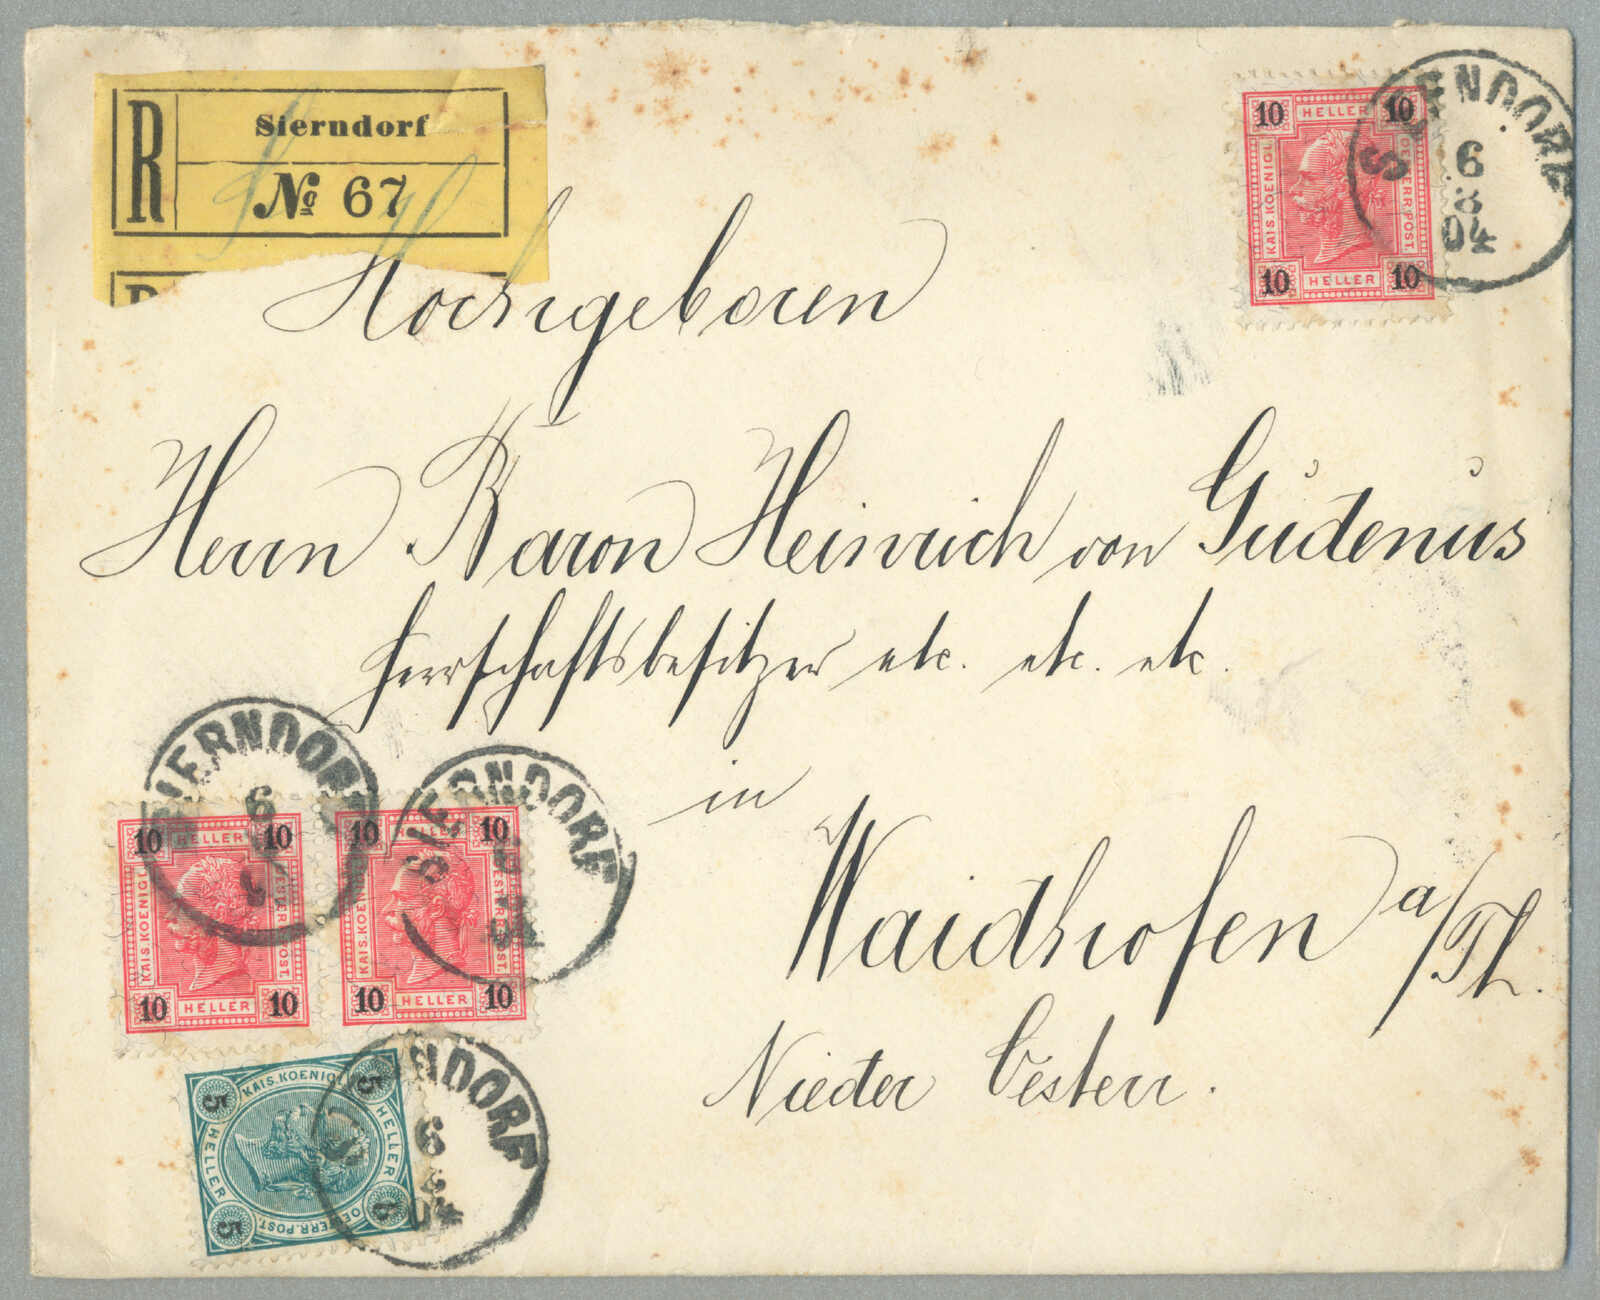 R
Sierndorf
No 67
SIERNDORF
6
8
04
10 HELLER 10
KAIS. KOENIGL.
OESTERR. POST.
10 HELLER 10
Hochgeboren
Herrn Baron Heinrich von Gudenus
Herrschaftsbesitzer etc. etc. etc.
in
Waidhofen a/Th.
Nieder Oesterr.
SIERNDORF
6
SIERNDORF
10 HELLER 10
KAIS. KOENIGL.
OESTERR. POST.
10 HELLER 10
10 10
KAIS. KOENIGL.
OESTERR. POST.
10 HELLER 10
SIERNDORF
6
04
5 KAIS. KOENIGL. 5
HELLER
HELLER
5 OESTERR. POST. 5